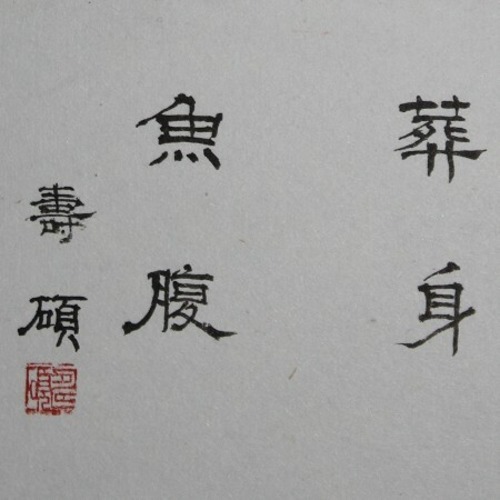 葬身
魚腹
壽碩